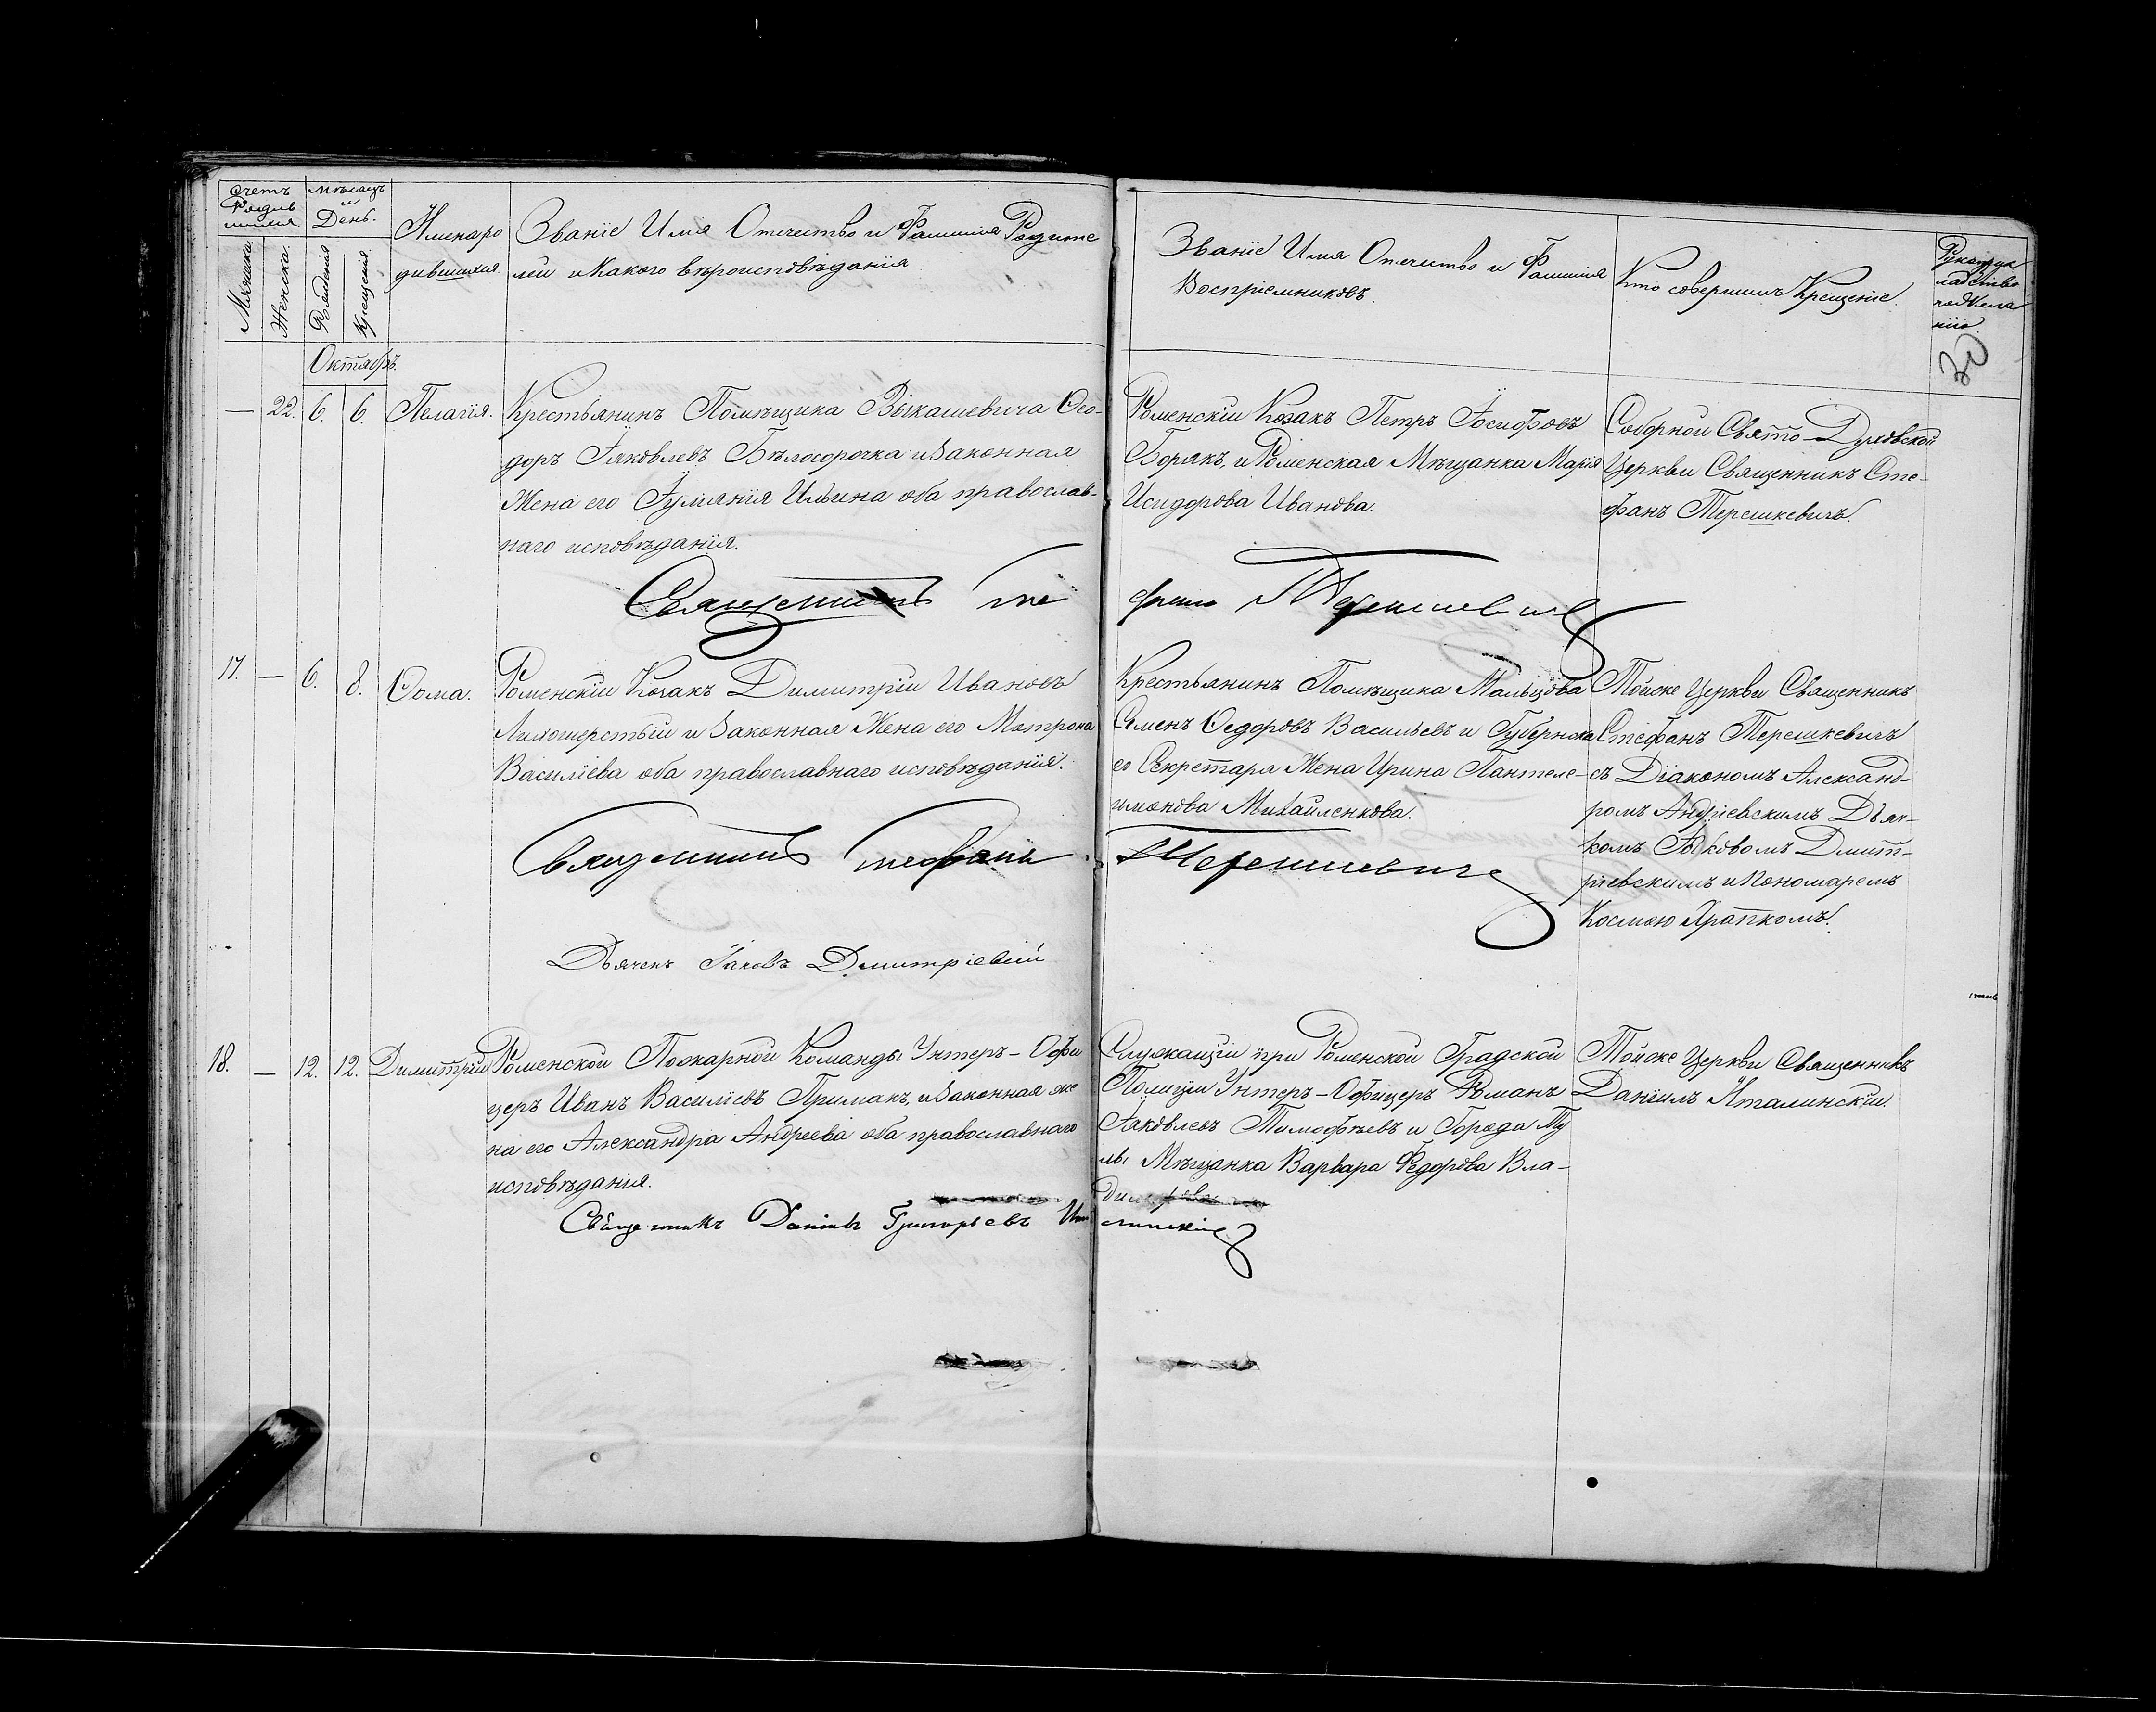 Счетъ
Родив
шихся.
Мѣсяцъ
и
День.
Мужеска.
Женска.
Рожденія
Крещенія.
Имена ро
дившихся.
Званіе Имя Отечество и Фамилія Родите
лей и Какого вѣроисповѣданія
Званіе Имя Отечество и Фамилія
Воспріемниковъ.
Кто совершилъ Крещеніе.
30
Октябрь.
— 22. 6. 6. Пелагія.
Крестьянинъ Помѣщика Выкашевича Ѳео-
доръ Іяковлевъ Бѣлосорочка и Законная
Жена его Іуліянія Ильина оба православ-
наго исповѣданія.
Роменскій Козакъ Петръ Іосифовъ
Борякъ, и Роменская Мѣщанка Марія
Исидорова Иванова.
Соборной Свято-Духовской
Церкви Священникъ Сте-
фанъ Терешкевичъ.
Священникъ Сте фанъ Терешкевичъ
17. — 6. 8. Ѳома.
Роменскій Козакъ Димитрій Ивановъ
Лихошерстый и Законная Жена его Матрона
Василіева оба православнаго исповѣданія.
Крестьянинъ Помѣщика Мальцова
Семенъ Ѳедоровъ Васильевъ и Губернска
го Секретаря Жена Ирина Пантеле-
имонова Михайленкова.
Тойже Церкви Священникъ
Стефанъ Терешкевичъ
съ Діакономъ Александ-
ромъ Андріевскимъ Дьяч-
комъ Іаковомъ Дмит-
ріевскимъ и Пономаремъ
Космою Храпкомъ.
Священникъ Стефанъ Терешкевичъ
Дьячекъ Іаковъ Дмитріевскій
18. — 12. 12. Димитрій
Роменской Пожарной Команды Унтеръ-Офи
церъ Иванъ Василіевъ Примакъ, и Законная же
на его Александра Андреева оба православнаго
исповѣданія.
Служащій при Роменской Градской
Полиціи Унтеръ-Офицеръ Романъ
Іаковлевъ Тимофѣевъ и Города Ту
лы Мѣщанка Варвара Федорова Вла-
Тойже Церкви Священникъ
Даніилъ Италинскій.
Священникъ Даніилъ Григорьевъ Италинскій